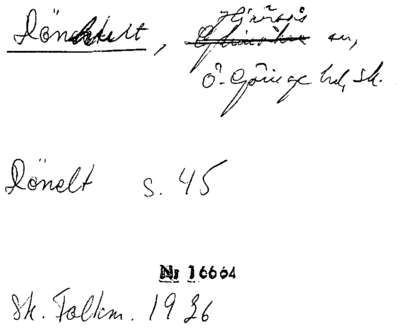 Lönhult, Hjärsås
sn,
Ö. Göinge hd, Sk.
Lönelt s. 45
Nr 16664
Sk. Folkm. 1926